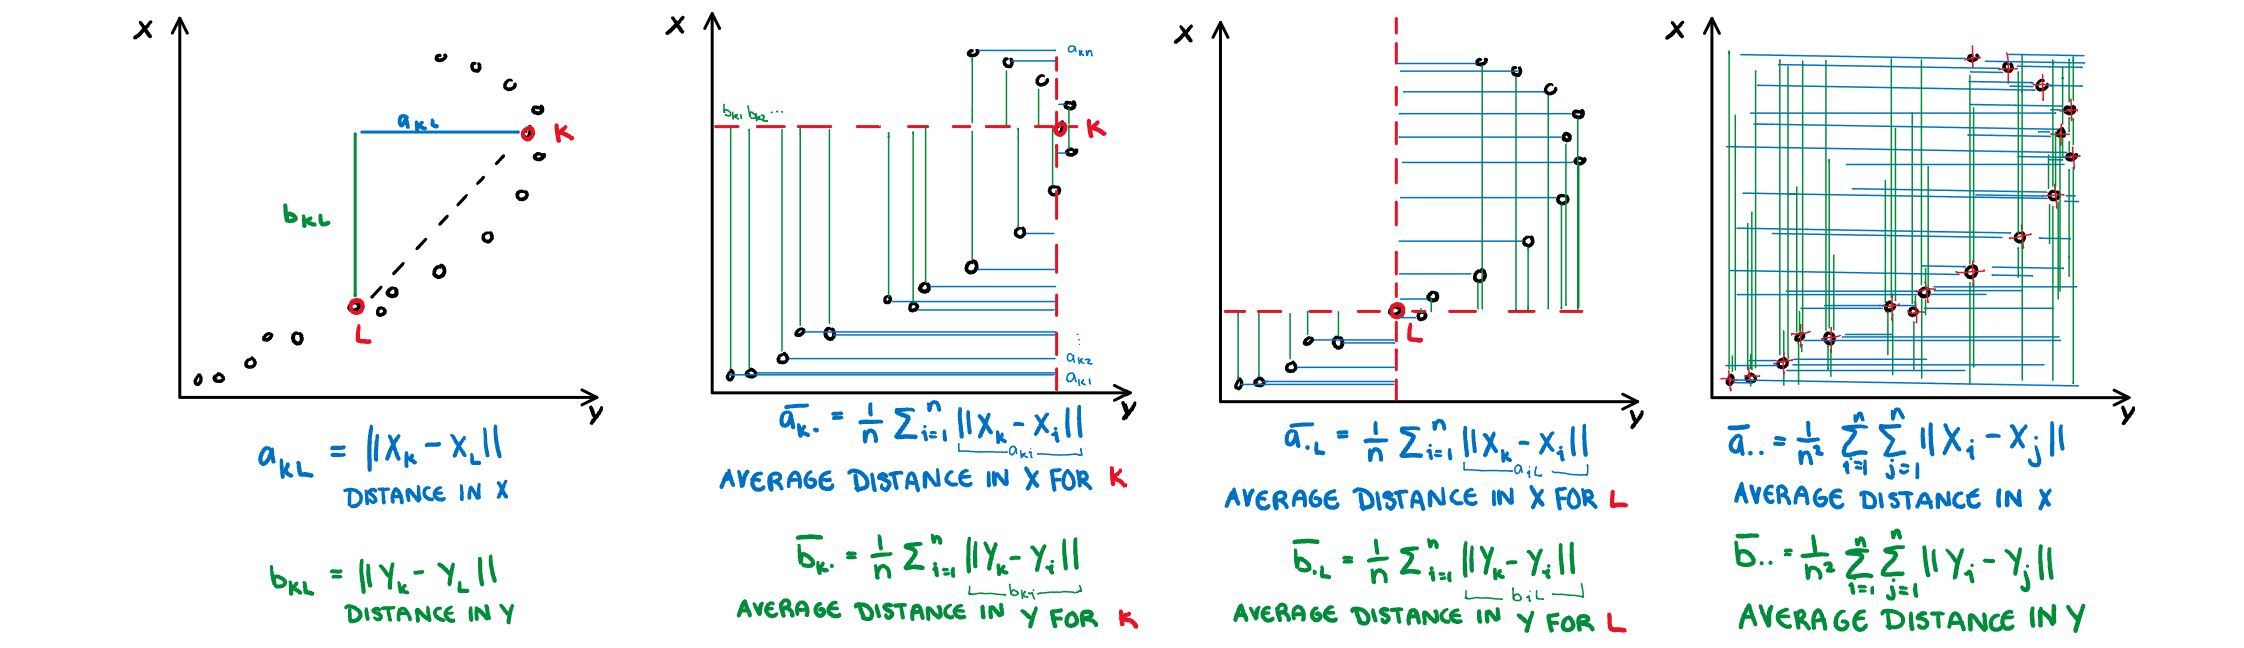 X
a_KL
K
b_KL
L
y
a_KL = ||X_K - X_L||
DISTANCE IN X
b_KL = ||Y_K - Y_L||
DISTANCE IN Y
X
a_Kn
b_K1 b_K2 ...
K
⋮
a_K2
a_K1
y
a̅_K. = 1/n Σ_{i=1}^n ||X_K - X_i||
a_Ki
AVERAGE DISTANCE IN X FOR K
b̅_K. = 1/n Σ_{i=1}^n ||Y_K - Y_i||
b_Ki
AVERAGE DISTANCE IN Y FOR K
X
L
y
a̅_.L = 1/n Σ_{i=1}^n ||X_K - X_i||
a_iL
AVERAGE DISTANCE IN X FOR L
b̅_.L = 1/n Σ_{i=1}^n ||Y_K - Y_i||
b_iL
AVERAGE DISTANCE IN Y FOR L
X
y
a̅.. = 1/n² Σ_{i=1}^n Σ_{j=1}^n ||X_i - X_j||
AVERAGE DISTANCE IN X
b̅.. = 1/n² Σ_{i=1}^n Σ_{j=1}^n ||Y_i - Y_j||
AVERAGE DISTANCE IN Y